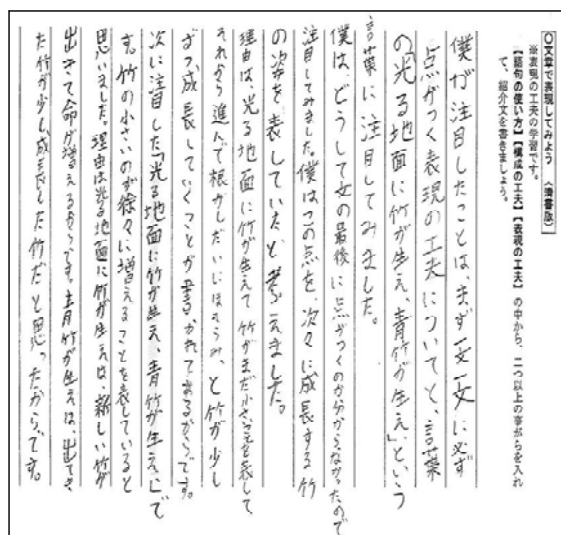 〇文章で表現してみよう 〈清書版〉
※表現の工夫の学習です。
【語句の使い方】【構成の工夫】【表現の工夫】の中から、二つ以上の事がらを入れ
て、紹介文を書きましょう。
僕が注目したことは、まず一文一文に必ず
点がつく表現の工夫についてと、言葉
の「光る地面に竹が生え、青竹が生え」という
言葉に注目してみました。
僕は、どうして文の最後に点がつくのか分からなかったので
注目してみました。僕はこの点を、次々に成長する竹
の姿を表していたと考えました。
理由は、光る地面に竹が生えて竹がまだ小さい姿を表して
それから進んで根がしだいにほそらみ、と竹が少し
ずつ成長していくことが書かれてあるからです。
次に注目した「光る地面に竹が生え、青竹が生え」で
す。竹の小さいのが徐々に増えることを表していると
思いました。理由は光る地面に竹が生えは、新しい竹が
出きて命が増えるからです。青竹が生えは、出てき
た竹が少し成長した竹だと思ったからです。